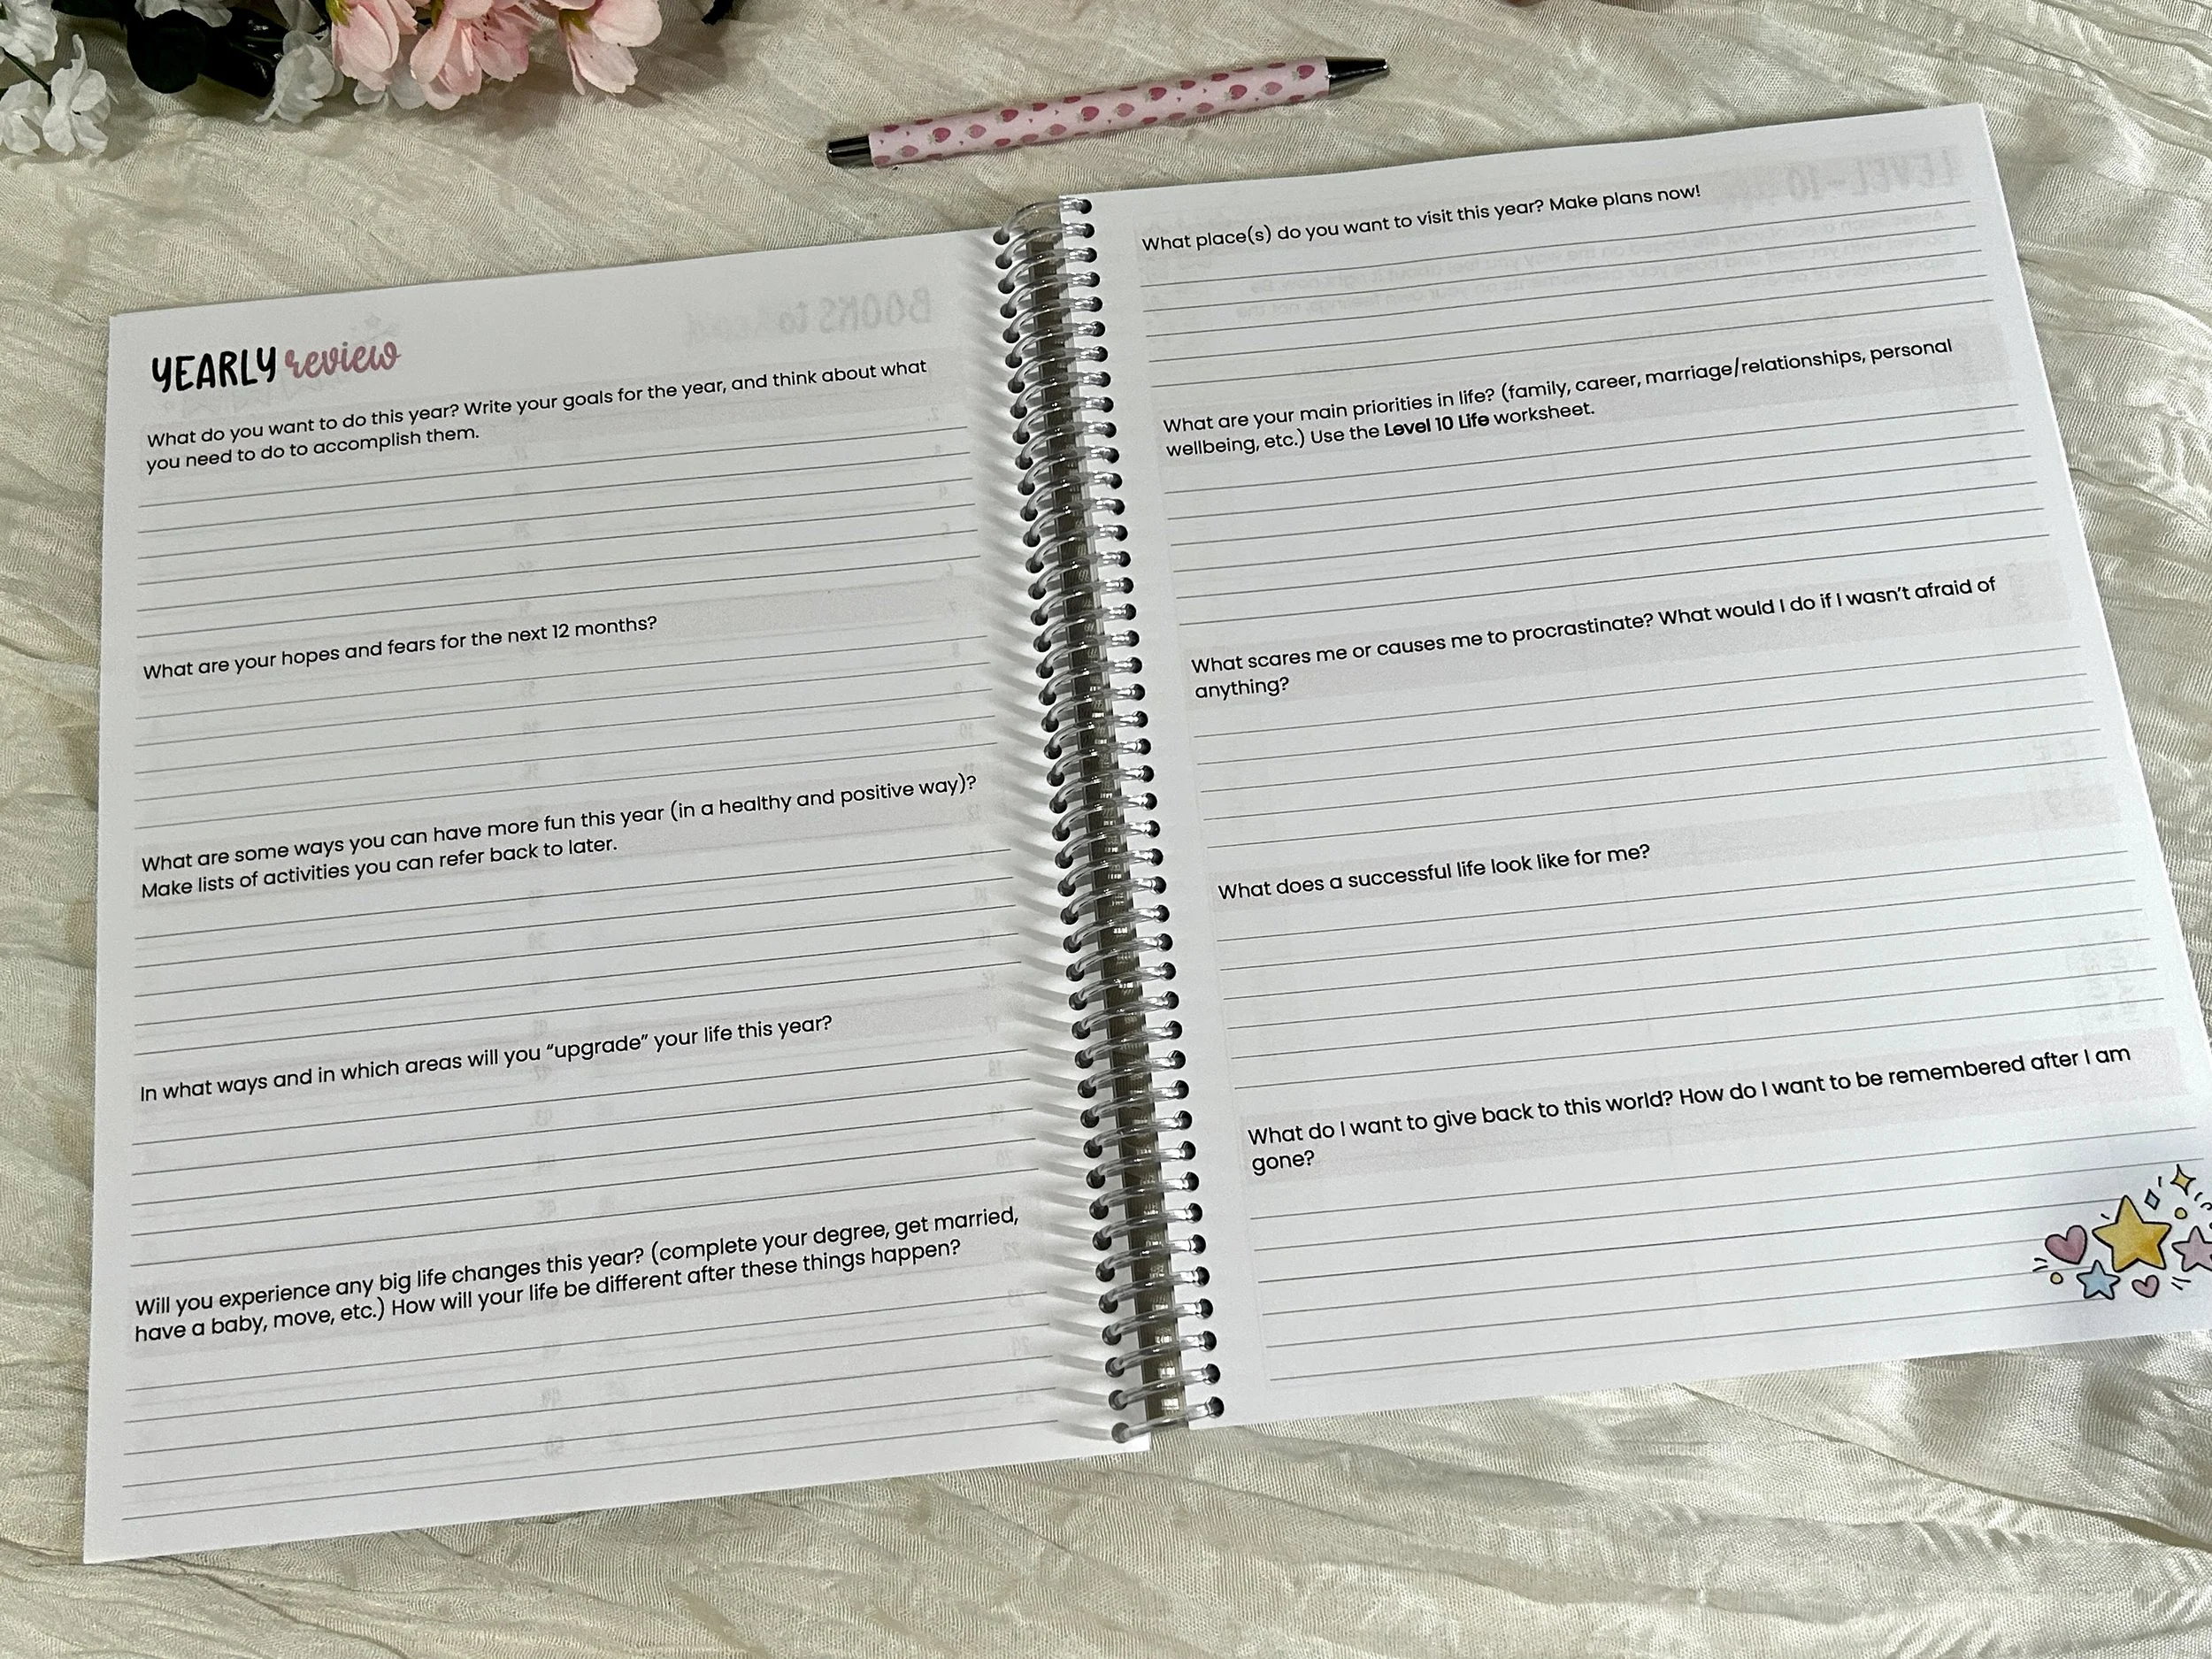 YEARLY review
What do you want to do this year? Write your goals for the year, and think about what
you need to do to accomplish them.
What are your hopes and fears for the next 12 months?
What are some ways you can have more fun this year (in a healthy and positive way)?
Make lists of activities you can refer back to later.
In what ways and in which areas will you “upgrade” your life this year?
Will you experience any big life changes this year? (complete your degree, get married,
have a baby, move, etc.) How will your life be different after these things happen?
What place(s) do you want to visit this year? Make plans now!
What are your main priorities in life? (family, career, marriage/relationships, personal
wellbeing, etc.) Use the Level 10 Life worksheet.
What scares me or causes me to procrastinate? What would I do if I wasn’t afraid of
anything?
What does a successful life look like for me?
What do I want to give back to this world? How do I want to be remembered after I am
gone?